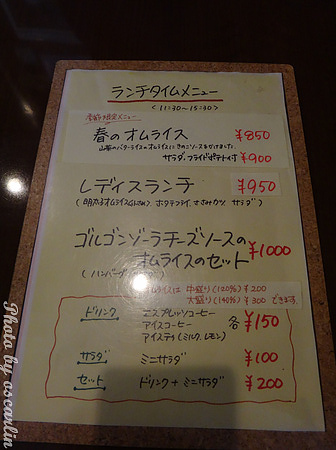 ランチタイムメニュー
<11:30~15:30>
季節限定メニュー
春のオムライス ¥850
山菜のバターライスのオムライスにきのこソースをかけました。
サラダ、フライドポテト付 ¥900
レディスランチ ¥950
(明太子オムライス ホタテフライ ささみカツ サラダ)
ゴルゴンゾーラチーズソースの
オムライスのセット ¥1000
(ハンバーグ
オムライスは 中盛り(120%) ¥200
大盛り(140%) ¥300 できます。
ドリンク エスプレッソコーヒー
アイスコーヒー 各¥150
アイスティ(ミルク、レモン)
サラダ ミニサラダ ¥100
セット ドリンク+ミニサラダ ¥200
Photo by oscarlin